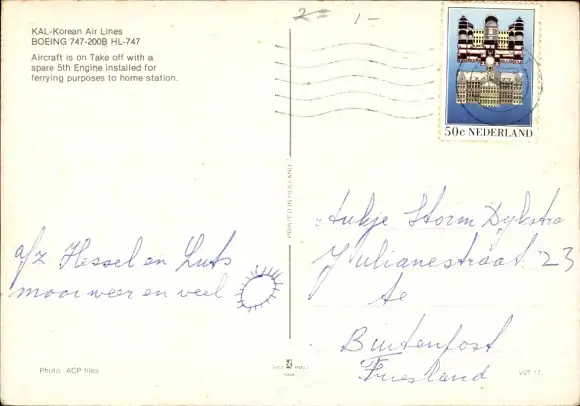 2=
1-
KAL-Korean Air Lines
BOEING 747-200B HL-747
Aircraft is on Take off with a
spare 5th Engine installed for
ferrying purposes to home station.
50c NEDERLAND
PRINTED IN HOLLAND
a/z Hessel en Luts
mooi weer en veel
Aukje Storm Dykstra
Julianestraat 23
te
Buitenpost
Friesland
Photo: ACP files